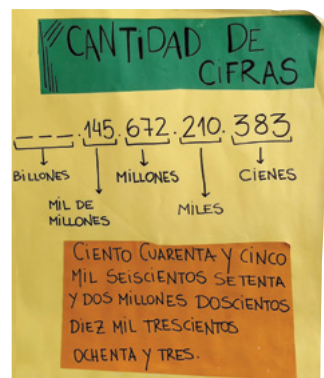 CANTIDAD DE
CIFRAS
_ _ _.145.672.210.383
BILLONES
MILLONES
CIENES
MIL DE
MILLONES
MILES
CIENTO CUARENTA Y CINCO
MIL SEISCIENTOS SETENTA
Y DOS MILLONES DOSCIENTOS
DIEZ MIL TRESCIENTOS
OCHENTA Y TRES.